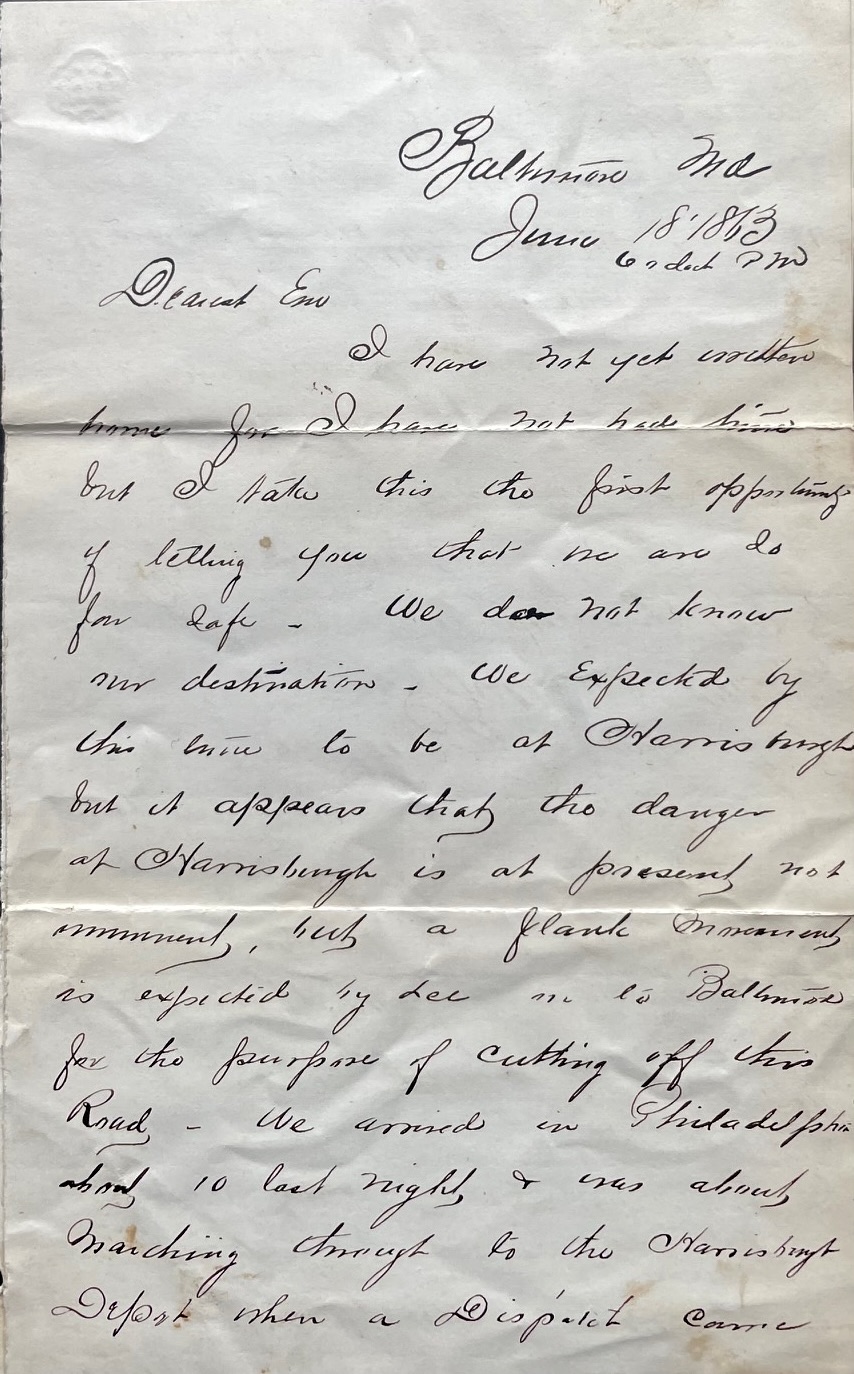 Baltimore Md
June 18' 1863
6 o clock P M
Dearest Em
I have not yet written
home for I have not had time
but I take this the first opportunity
of letting you that we are so
far safe - We do not know
our destination - We Expected by
this time to be at Harrisburgh
but it appears that the danger
at Harrisburgh is at present not
imminent, but a flank movement
is expected by Lee on to Baltimore
for the purpose of cutting off this
Road - We arrived in Philadelphia
about 10 last night & was about
Marching through to the Harrisburgh
Depot when a Dispatch came